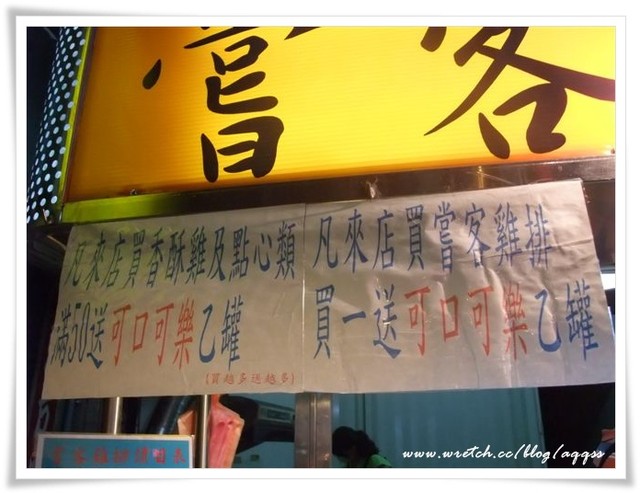 嘗客
凡來店買香酥雞及點心類
滿50送可口可樂乙罐
(買越多送越多)
凡來店買嘗客雞排
買一送可口可樂乙罐
www.wretch.cc/blog/aggss